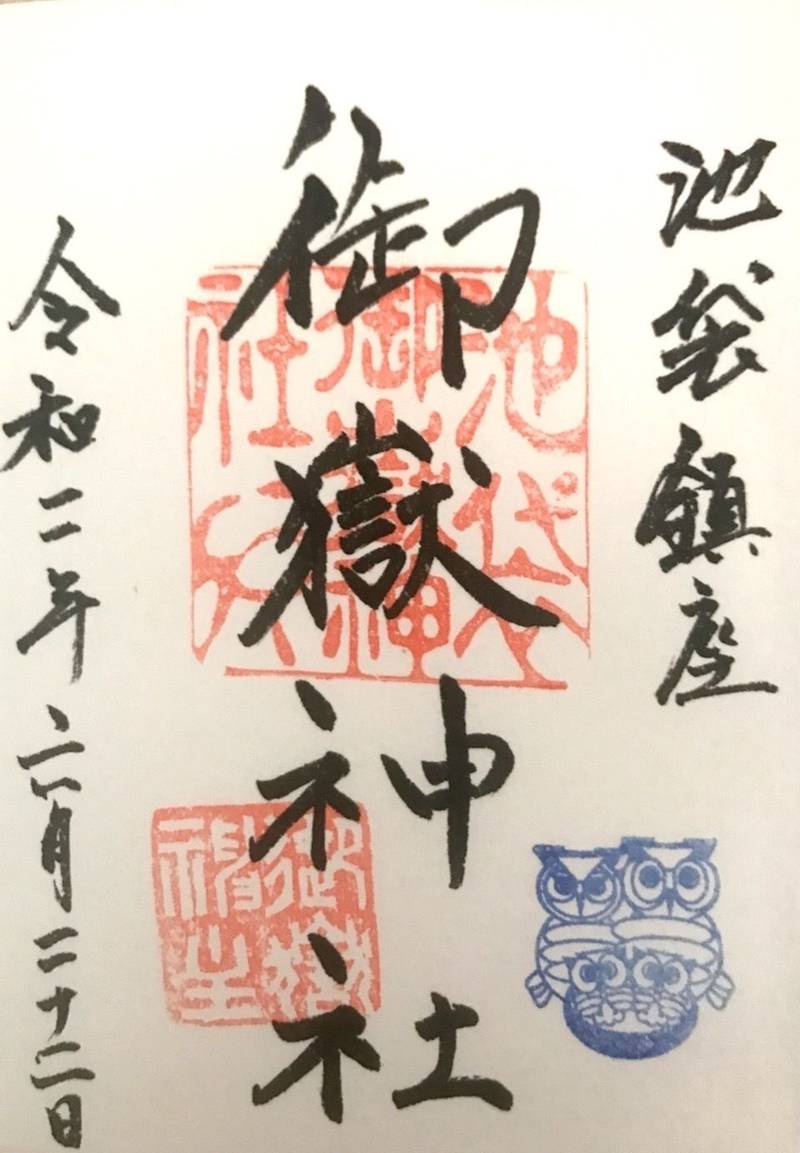 池袋鎮座
御嶽神社
令和二年六月二十二日
池袋
御嶽神
社印